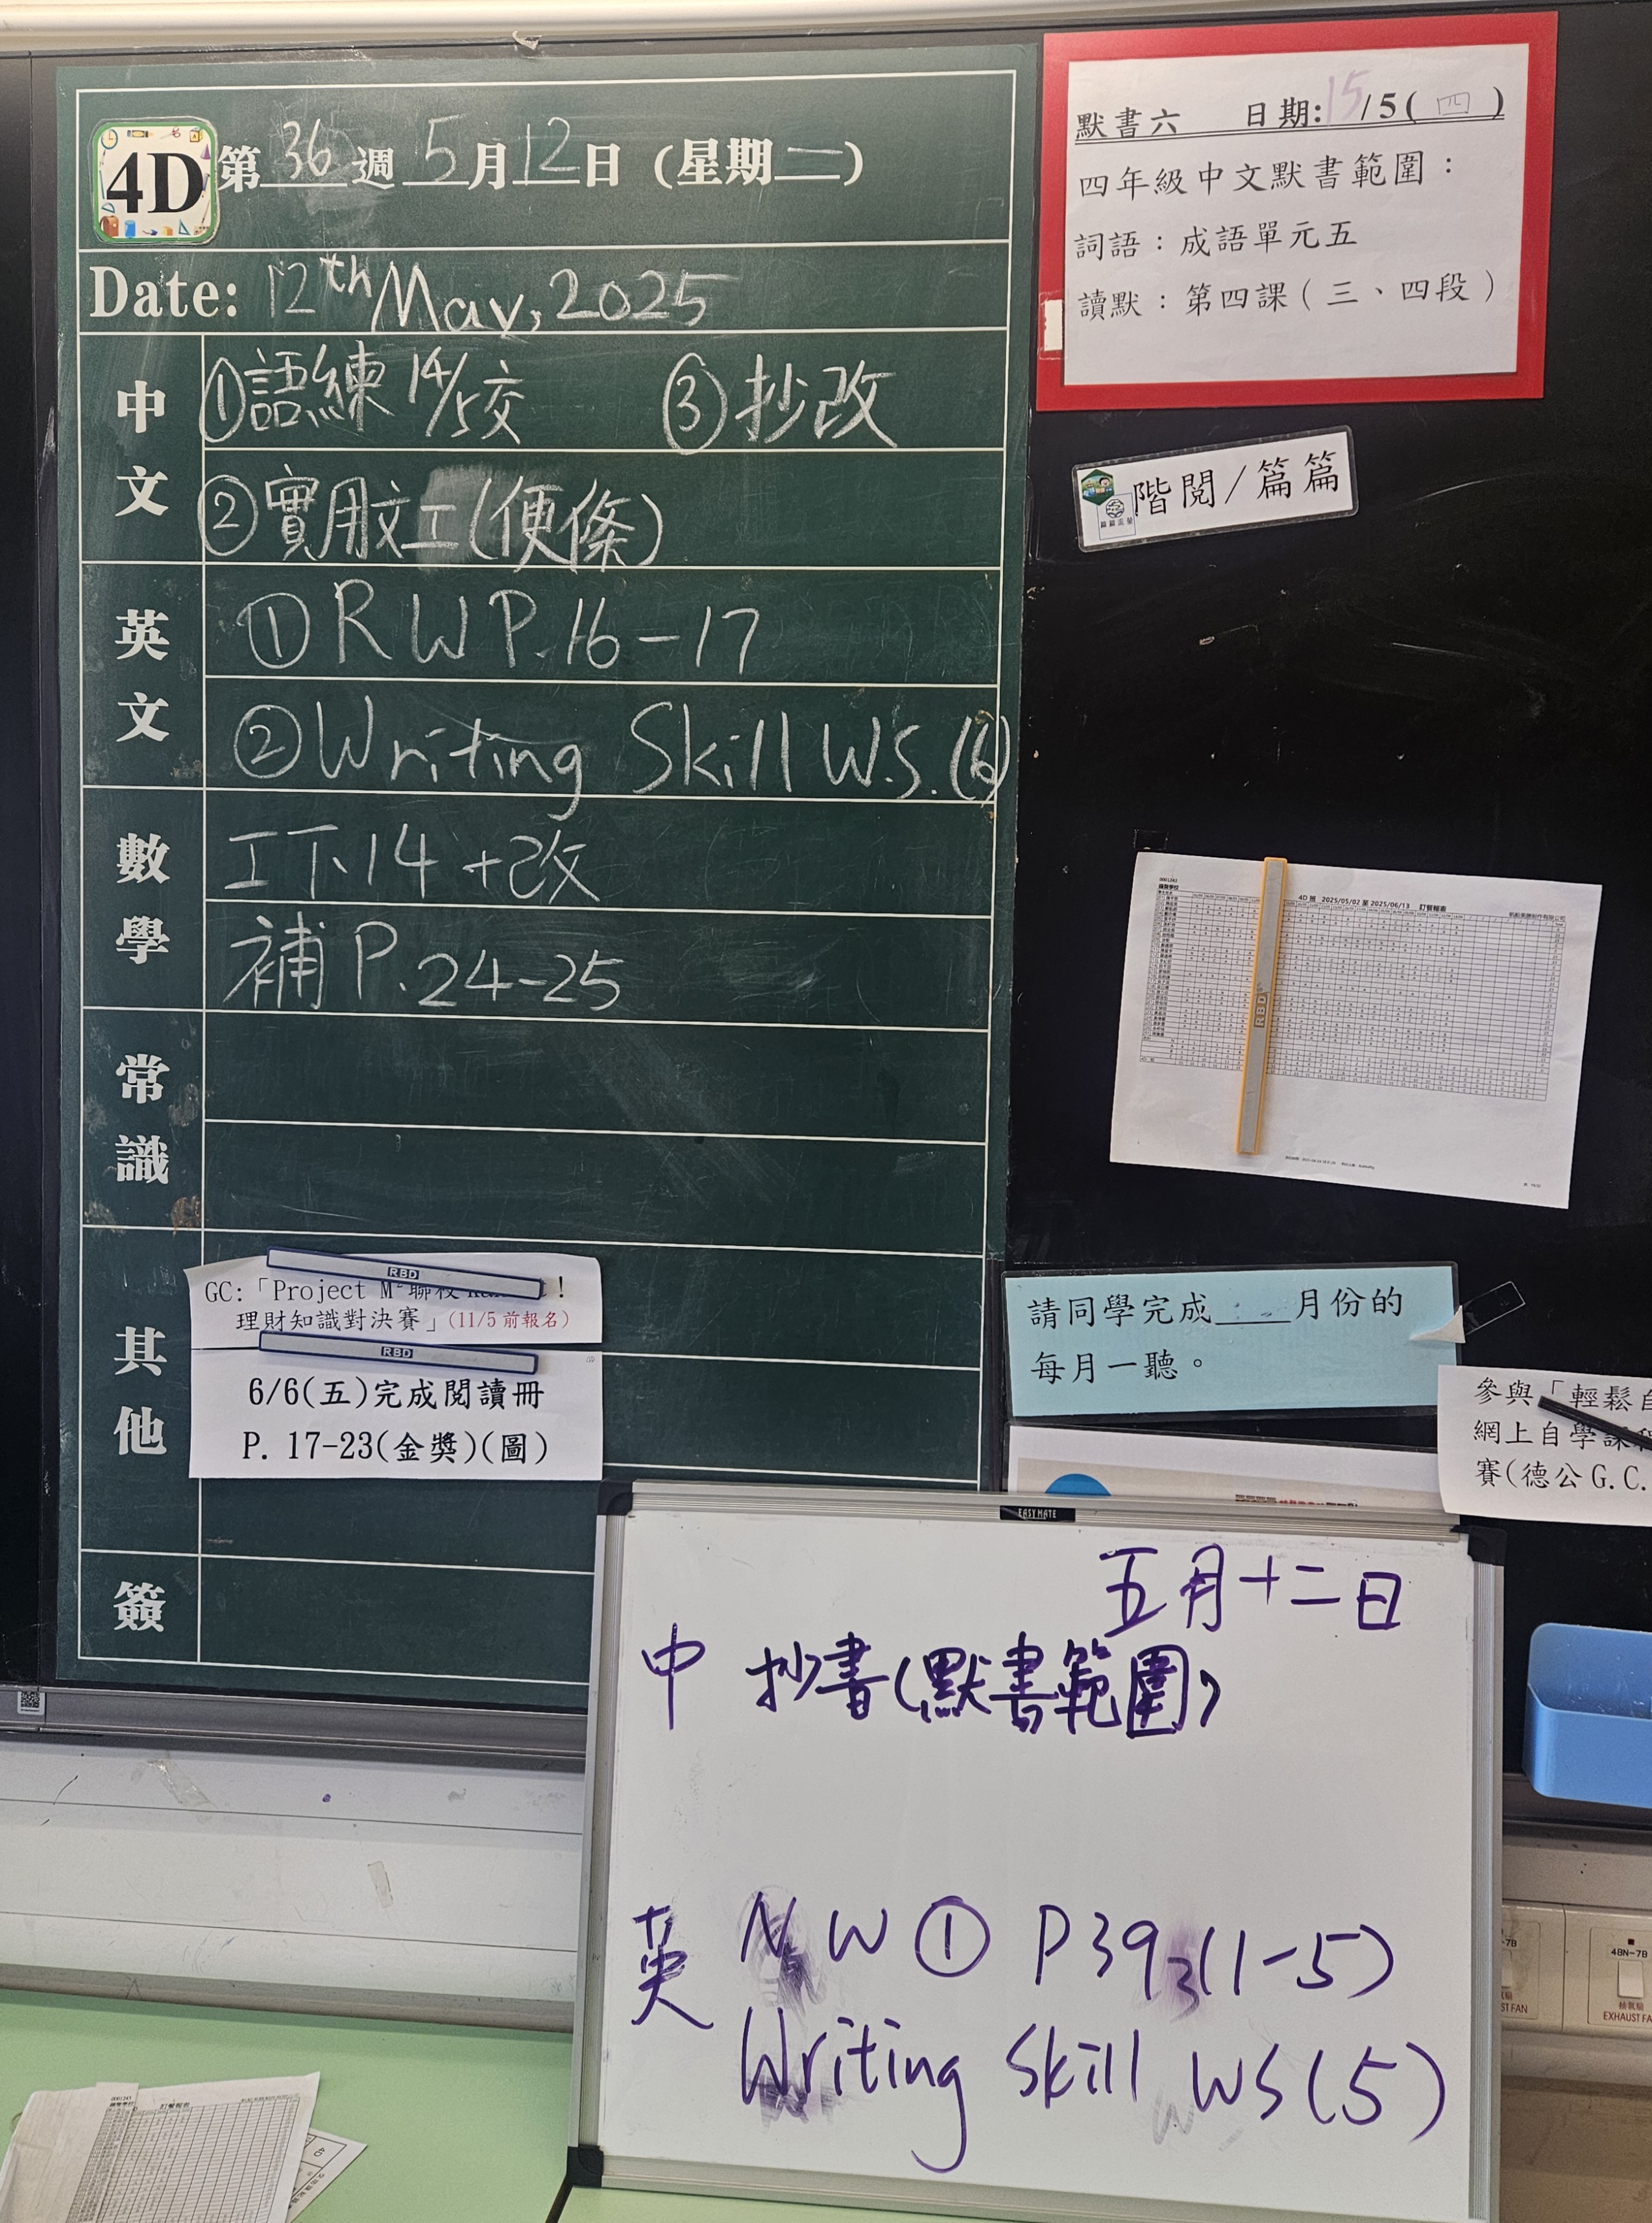 4D
第36週5月12日(星期二)
Date: 12th May, 2025
中文
①語練14/5交 ③抄改
②實用文工(便條)
英文
①RWP.16-17
②Writing Skill W.S.(6)
數學
工下14+改
補P.24-25
常識
其他
RBD
GC:「Project M 聯校 !
理財知識對決賽」(11/5前報名)
RBD
6/6(五)完成閱讀冊
P. 17-23(金獎)(圖)
簽
默書六 日期:15/5(四)
四年級中文默書範圍:
詞語:成語單元五
讀默:第四課(三、四段)
階閱/篇篇
4D 班 2025/05/02 至 2025/06/13 訂餐報表
RBD
請同學完成___月份的
每月一聽。
參與「輕鬆自
網上自學課程
賽(德公G.C.
EASY MATE
五月十二日
中 抄書(默書範圍)
英 NW① P39,3(1-5)
Writing Skill WS(5)
-7B
ST FAN
4BN-7B
抽氣扇
EXHAUST FA
訂餐報表
4D